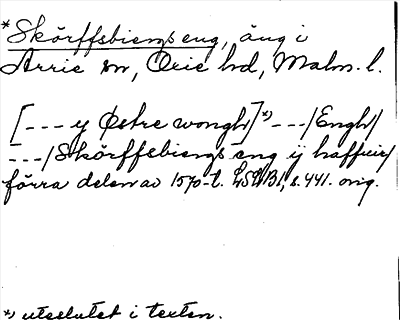 *Skörffsbiergs eng, äng i
Arrie sn, Oxie hd, Malm. l.
[--- y Østre wongh]*) ---/Engh/
---/Skörffsbiergs eng ij haffuir/
förra delen av 1570-t. LSLB1, s. 441. orig.
*) uteslutet i texten.